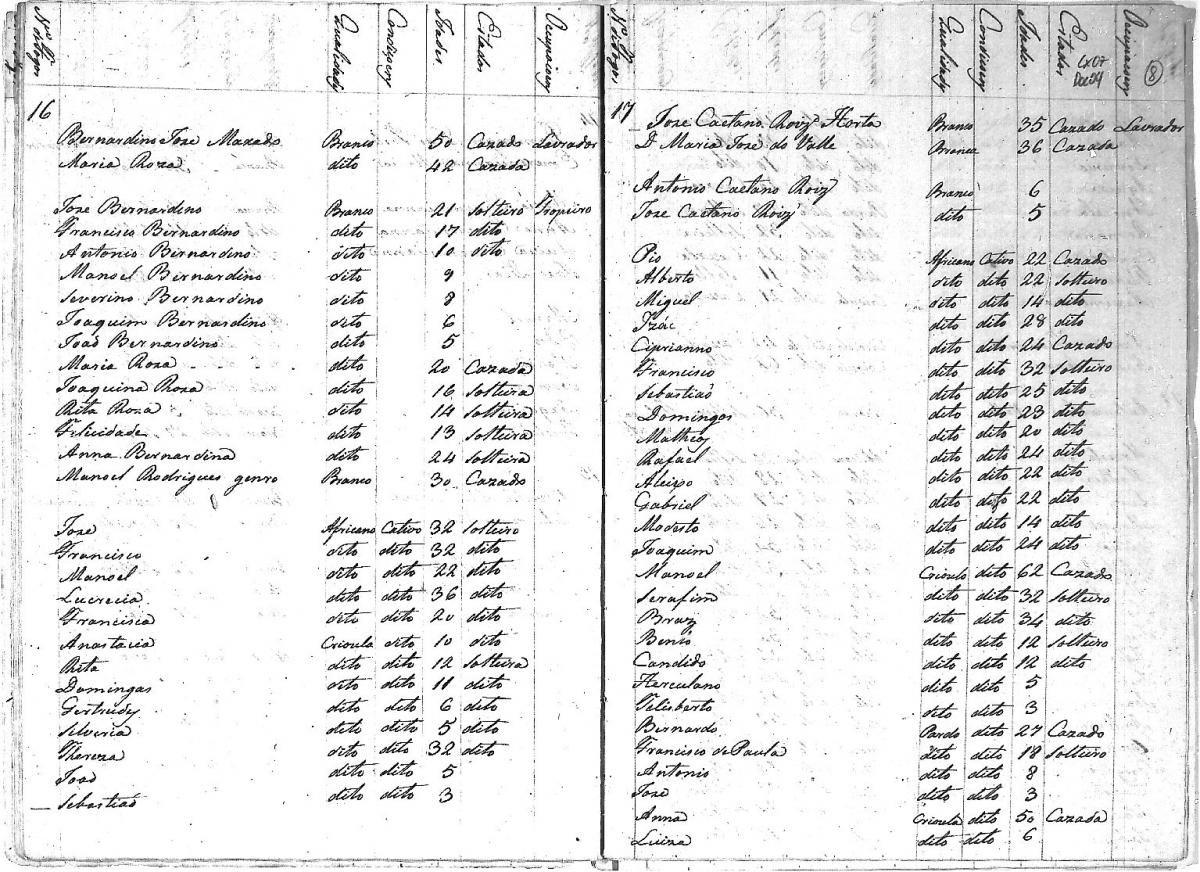 Nos dos fogos Qualidades Condiscoens Idades Estados Ocupascoens
16
Bernardino Joze Maxado Branco 50 Cazado Lavrador
Maria Roza dito 42 Cazada
Joze Bernardino Branco 21 Solteiro Tropeiro
Francisco Bernardino dito 17 dito
Antonio Bernardino dito 10 dito
Manoel Bernardino dito 9
Severino Bernardino dito 8
Joaquim Bernardino dito 6
Joaõ Bernardino dito 5
Maria Roza dito 20 Cazada
Joaquina Roza dito 16 Solteira
Rita Roza dito 14 Solteira
Felicidade dito 13 Solteira
Anna Bernardina dito 24 Solteira
Manoel Rodrigues genro Branco 30 Cazado
Joze Africano Cativo 32 Solteiro
Francisco dito dito 32 dito
Manoel dito dito 22 dito
Lucrecia dito dito 36 dito
Francisca dito dito 20 dito
Anastacia Crioula dito 10 dito
Rita dito dito 12 Solteira
Domingas dito dito 11 dito
Gertrudes dito dito 6 dito
Silveria dito dito 5 dito
Thereza dito dito 32 dito
Joaõ dito dito 5
Sebastiaõ dito dito 3
Nos dos fogos Qualidades Condiscoens Idades Estados Ocupascoens
Cx07
Doc04
8
17
Joze Caetano Roiz Horta Branco 35 Cazado Lavrador
D. Maria Joze do Valle Branca 36 Cazada
Antonio Caetano Roiz Branco 6
Joze Caetano Roiz dito 5
Pio Africano Cativo 22 Cazado
Alberto dito dito 22 Solteiro
Miguel dito dito 14 dito
Izác dito dito 28 dito
Ciprianno dito dito 24 Cazado
Francisco dito dito 32 Solteiro
Sebastiaõ dito dito 25 dito
Domingos dito dito 23 dito
Matheos dito dito 20 dito
Rafael dito dito 24 dito
Aleixo dito dito 22 dito
Gabriel dito dito 22 dito
Modesto dito dito 14 dito
Joaquim dito dito 24 dito
Manoel Crioulo dito 62 Cazado
Serafim dito dito 32 Solteiro
Braz dito dito 34 dito
Bento dito dito 12 Solteiro
Candido dito dito 12 dito
Herculano dito dito 5
Felisberto dito dito 3
Bernardo Pardo dito 27 Cazado
Francisco de Paula dito dito 18 Solteiro
Antonio dito dito 8
Joze dito dito 3
Anna Crioula dito 50 Cazada
Luiza dito dito 6